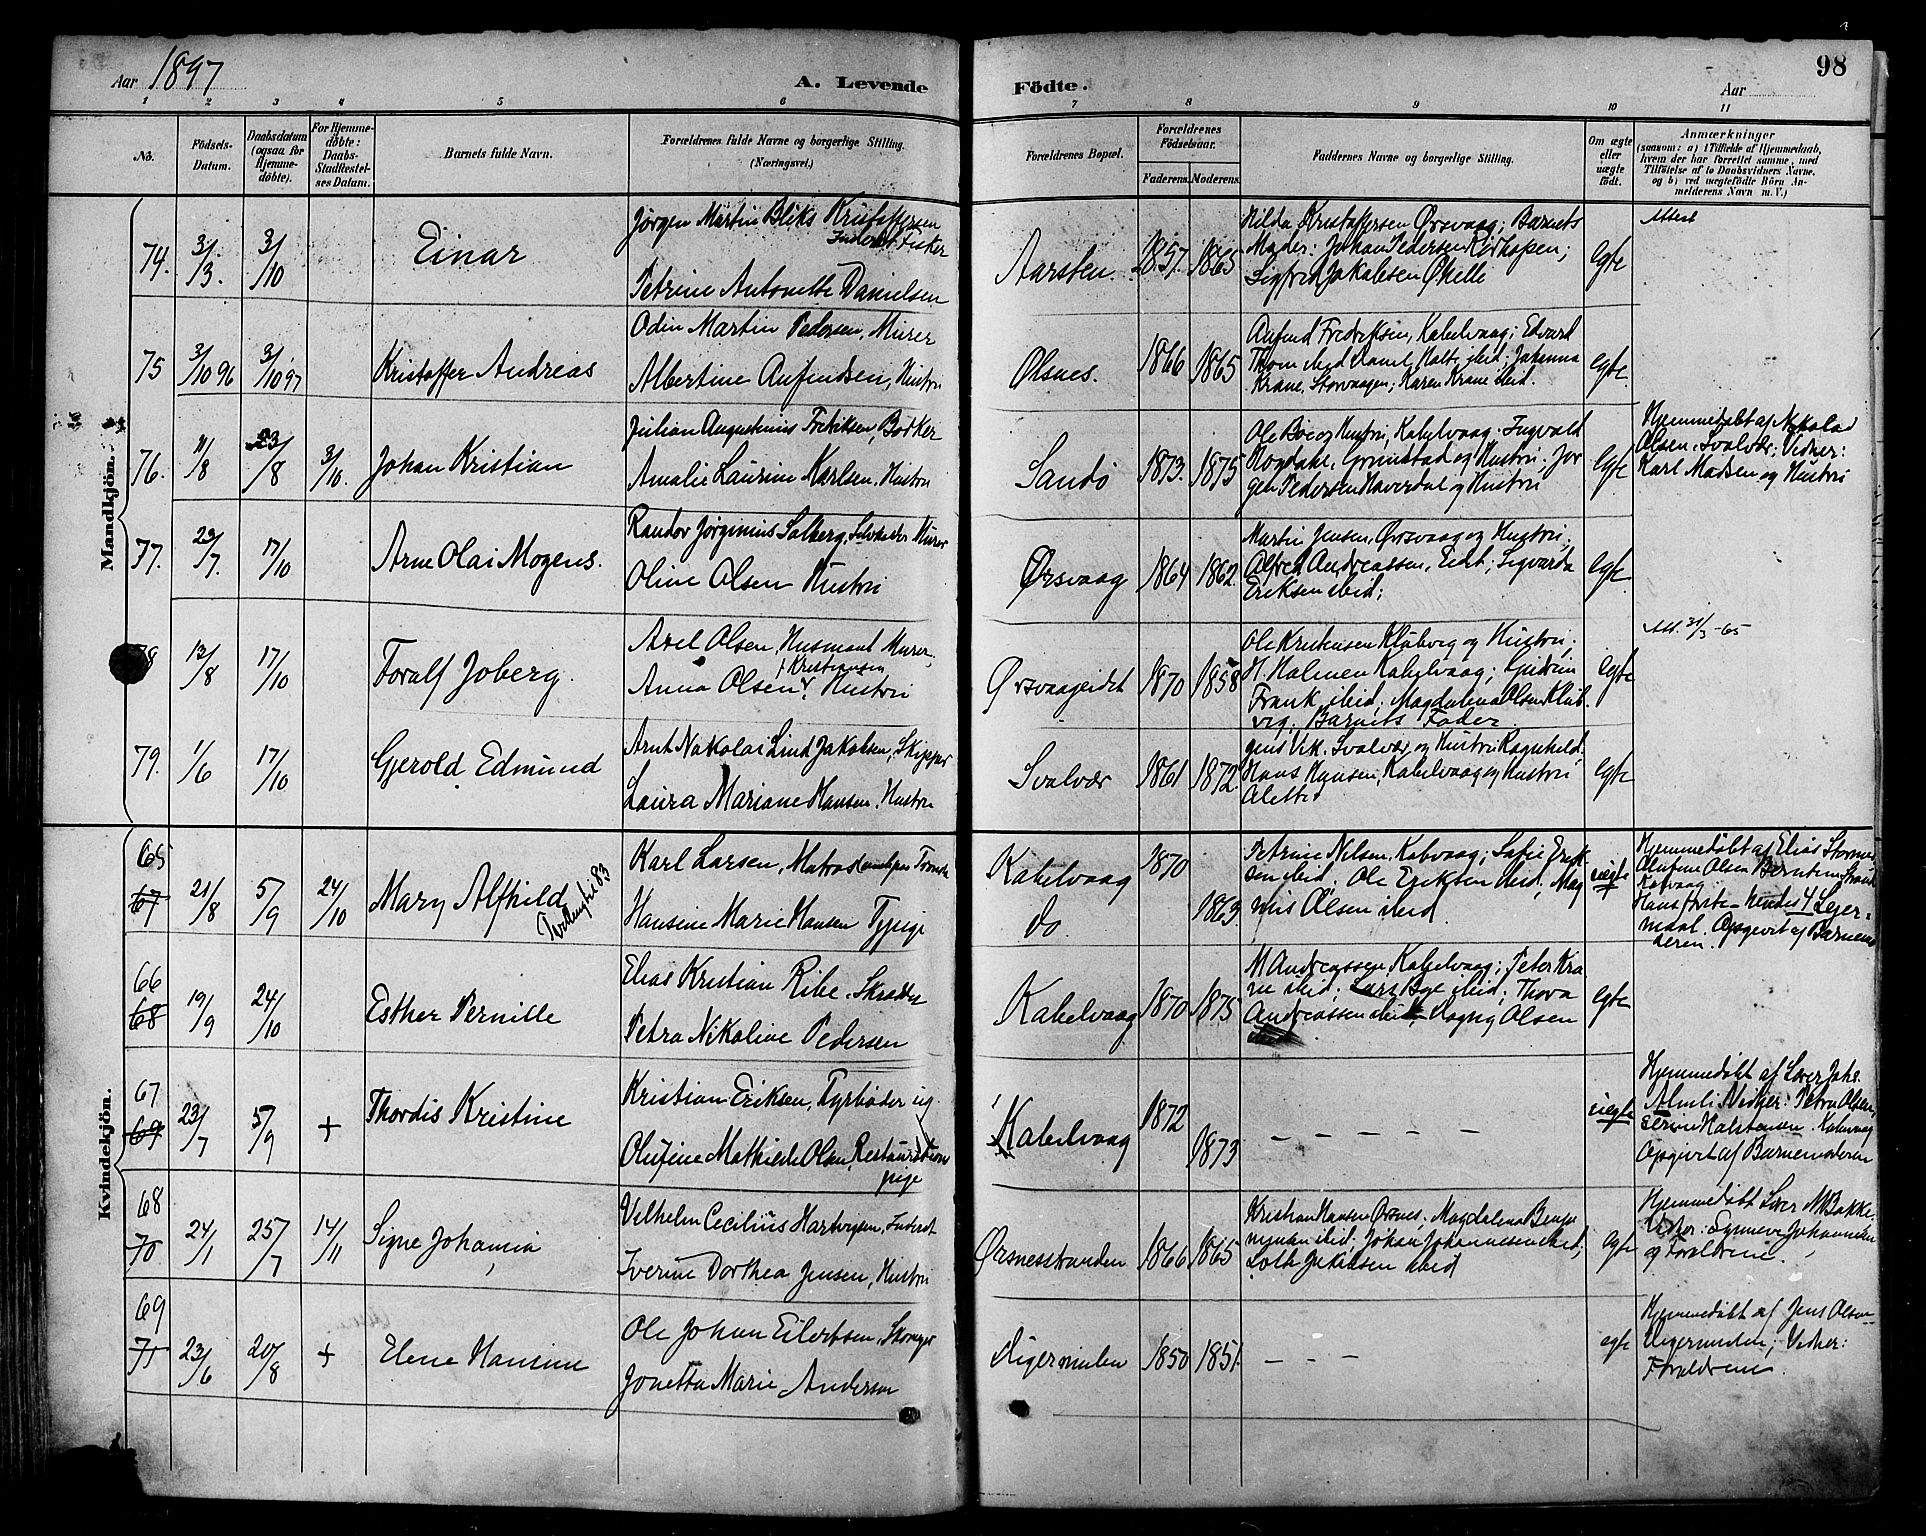 Aar 1897
A. Levende
Födte.
Aar
98
1 2 3 4 5 6 7 8 9 10 11
No.
Födsels-Datum.
Daabsdatum (ogsaa for Hjemme-döbte).
For Hjemme-döbte: Daabs-Stadfæstel-ses Datum.
Barnets fulde Navn.
Forældrenes fulde Navne og borgerlige Stilling.
(Næringsvei.)
Forældrenes Bopæl.
Forældrenes Födselsaar.
Faderens. Moderens.
Faddernes Navne og borgerlige Stilling.
Om ægte eller uægte födt.
Anmærkninger
(saasom: a) i Tilfælde af Hjemmedaab,
hvem der har forrettet samme, med
Tilföielse af to Daabsvidners Navne.
og b) ved uægtefödte Börn An-
melderens Navn m. V.)
Mandkjön.
74. 3/3. 3/10 Einar
Jörgen Martin Bliks Kristoffersen
Inderst Fisker
Petrine Antonette Danielsen
1857. 1865
Hilda Kristoffersen Ørsvaag; Barnets
Moder: Johan Pedersen
Sigfred Jakobsen
Egte
Attest
75 3/10 96 3/10 97 Kristoffer Andreas
Odin Martin Pedersen, Murer
Albertine Anfindsen, Hustru
Ølsnes. 1866 1865
Anfind Fredriksen, Kabelvaag; Edvard
Thom ibid Daniel Holte ibid; Johanna
Krane, Storvaagen; Karen Krane ibid.
Egte.
76. 11/8 23/8 3/10. Johan Kristian
Julian Augustinus Fredriksen, Bödker
Amalie Laurine Karlsen, Hustru
Sandö 1873. 1875
Ole Boe og Hustru, Kabelvaag. Ingvald
Hogdahl, Grimstad og Hustru. Jör
gen Pedersen Haverdal og Hustru
Egte
Hjemmedöbt af Nikolai
Olsen, Svolvær; Vidner:
Karl Madsen og Hustru
77. 29/7. 17/10 Arne Olai Mogens.
Randor Jörginius Solberg, Selveier Murer
Oline Olsen Hustru
Ørsvaag 1864 1862.
Martin Jensen, Ørsvaag og Hustru;
Alfred Andreassen, ibid; Sigvarda
Eriksen ibid;
Egte.
78 13/8 17/10 Toralf Joberg.
Axel Olsen, Husmand Murer,
f. Kristiansen
Anna Olsen Hustru
Ørsvaageidet 1870 1858
Ole Kristensen Klubvig og Hustru;
H. Halmen Kabelvaag;
Frank ibid; Magdalena Olsen Klub-
vig. Barnets Fader.
Egte
Att. 31/3-65
79. 1/6 17/10 Gjerold Edmund
Arnt Nikolai Lind Jakobsen, Skipper
Laura Mariane Hansen, Hustru
Svolvær 1861 1872.
Jens Vik. Svolvær, og Hustru Ragnhild.
Hans Hansen, Kabelvaag og Hustru
Alette
Egte
Kvindekjön.
65
67 21/8 5/9 24/10 Mary Alfhild
Tvilling til 83
Karl Larsen, Matros
Hansine Marie Hansen Tjpige
Kabelvaag 1870
do. 1863
Petrine Nilsen, Kabvaag; Sofie Erik-
sen ibid, Ole Eriksen ibid, Mag
nus Olsen ibid.
uægte
Hjemmedöbt af Elias Stormo
Olufine Olsen Berntine Strand
Kabvaag
Hans förste – hendes 4 Leier=
maal. Opgivet af Barnemo
deren.
66
68 19/9 24/10 Esther Pernille
Elias Kristian Ribe. Skrædder
Petra Nikoline Pedersen
Kabelvaag 1870 1875
M Andreassen, Kabelvaag; Peter Kra
ne ibid; Lars Bye ibid; Thova
Andreassen ibid, Dagny Olsen
Egte
67
69 23/7 5/9 + Thordis Kristine
Kristian Eriksen, Fyrböder ug.
Olufine Mathilde Olsen, Restaurations
pige
Kabelvaag 1872
1873
– – – – –
uægte
Hjemmedöbt af
Vidner: Petra Olsen,
Halstensen. Kabelvaag
Opgivet af Barnemoderen
68
70 24/1 25/7 14/11 Signe Johania
Vilhelm Cecilius Hartvigsen, Inderst
Iverine Dorthea Jensen, Hustru
Ørsnesstranden 1866 1865
Kristian Hansen Ørsnes; Magdalena Benja
mynsen ibid; Johan Johannesen ibid;
Loth Jakobsen ibid
egte
Hjemmedöbt Lærer M Bakke.
Vidner: Synneve Johannesen
og Forældrene.
69
71 23/6 20/8 + Elene Hansine
Ole Johan Eilertsen,
Jonetta Marie Andersen
Digermulen 1850 1851.
– – –
egte
Hjemmedöbt af Jens Olsen
Digermulen; Vidner:
Forældrene.